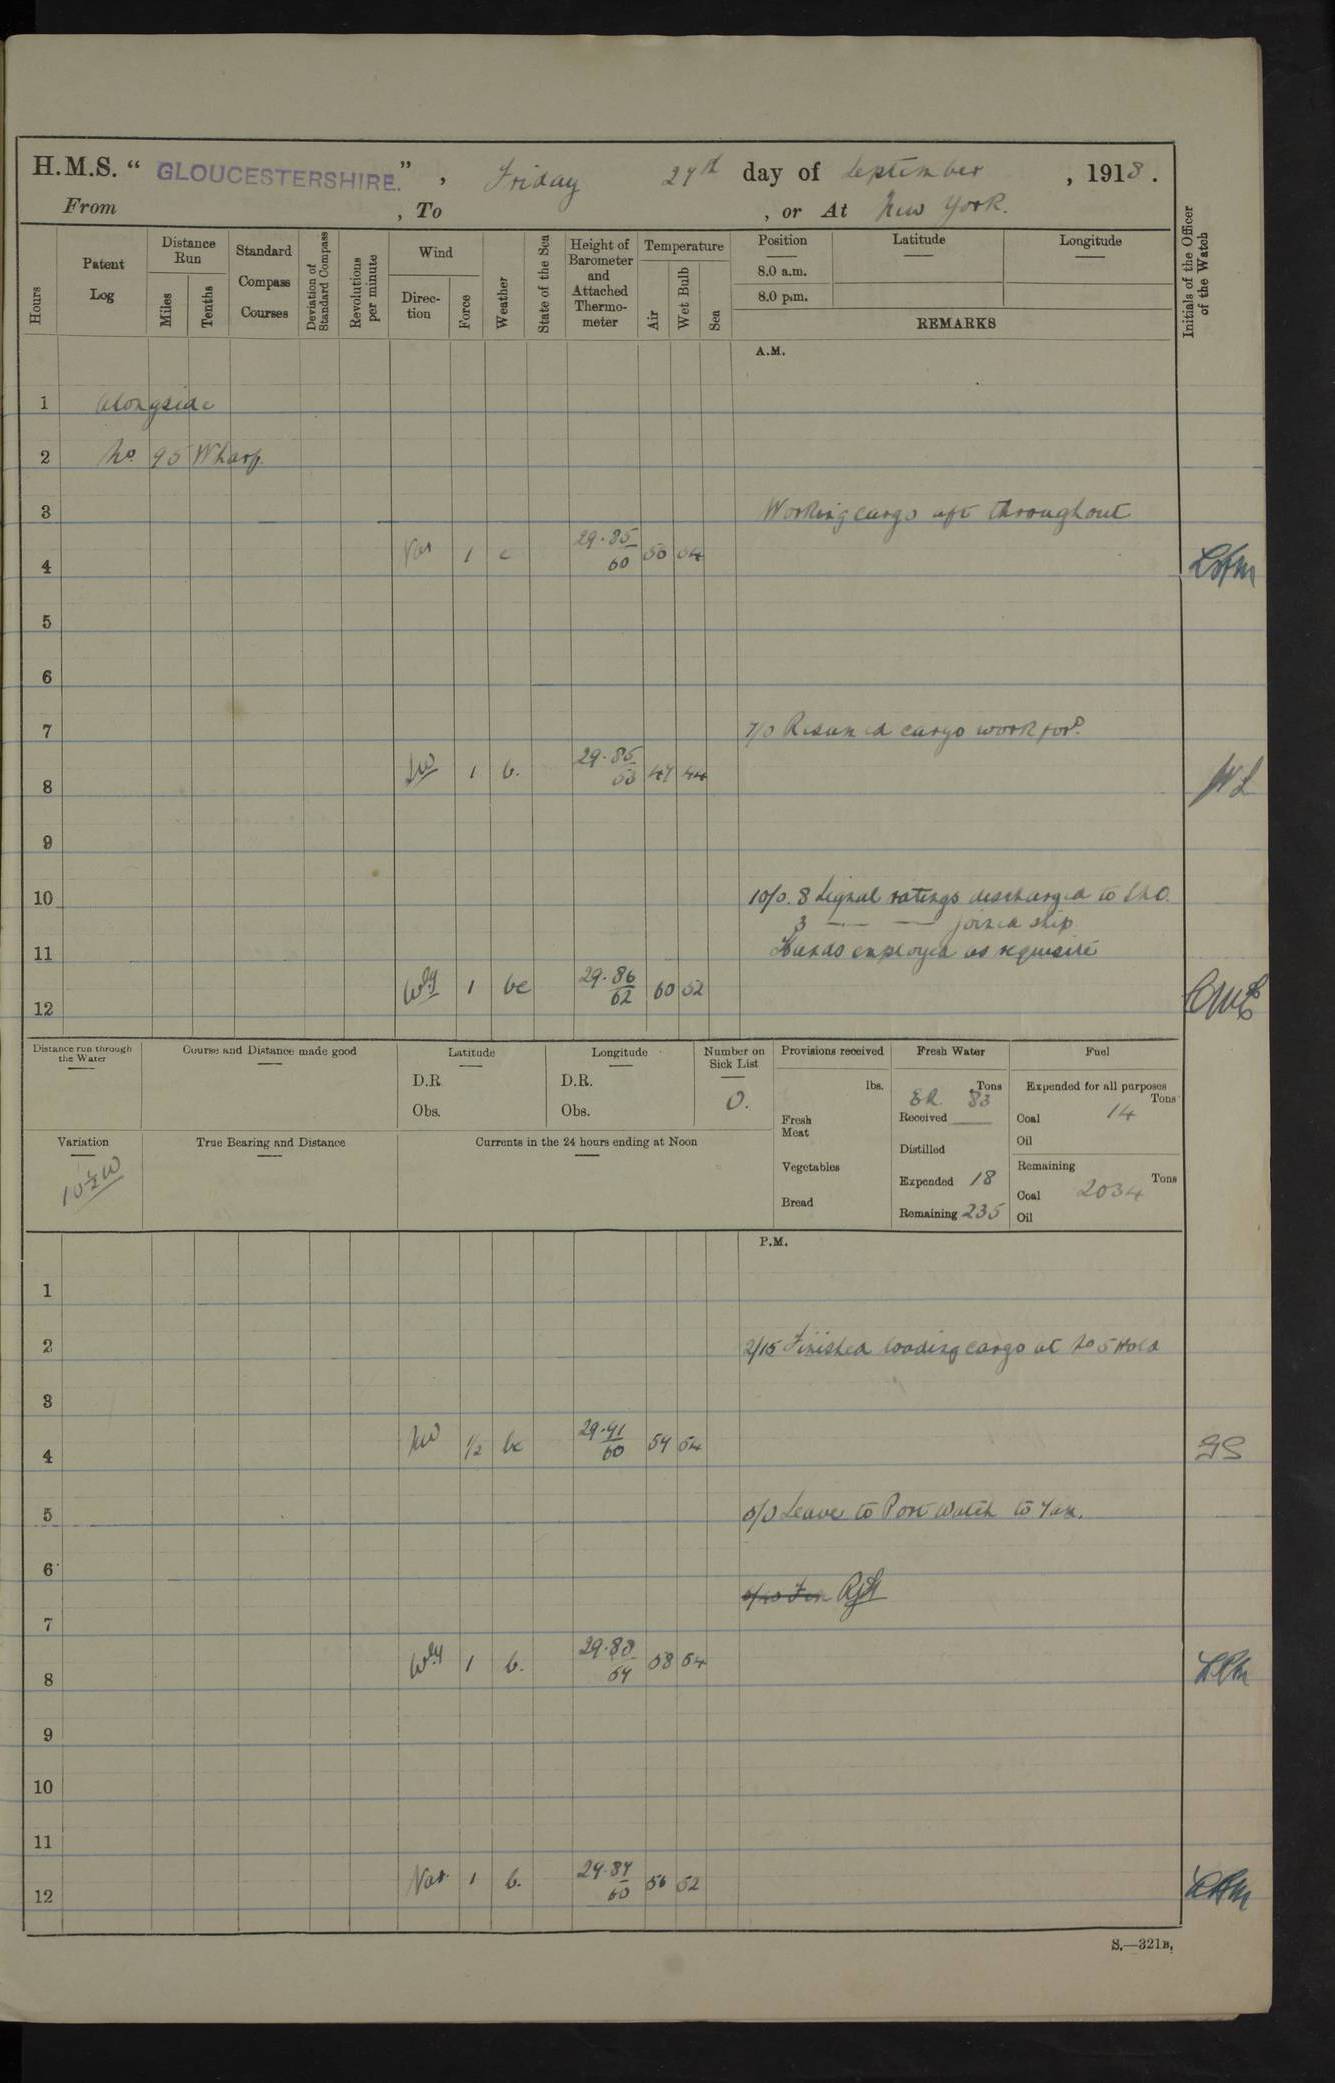 H.M.S. “ GLOUCESTERSHIRE. ” , Friday 27th day of September , 1918 .
From , To , or At New York.
Hours
Patent Log
Distance Run
Miles
Tenths
Standard Compass Courses
Deviation of Standard Compass
Revolutions per minute
Wind
Direction
Force
Weather
State of the Sea
Height of Barometer and Attached Thermometer
Temperature
Air
Wet Bulb
Sea
Position
8.0 a.m.
8.0 p.m.
Latitude
Longitude
REMARKS
Initials of the Officer of the Watch
A.M.
1 Alongside
2 No. 95 Wharf.
3 Working cargo aft throughout
4 Var 1 c 29.85 60 56 54
5
6
7 7/0 Resumed cargo work ford.
8 SW 1 b. 29.85 58 47 44 WL
9
10 10/0. 8 Signal ratings discharged to SNO.
3 — — joined ship
11 Hands employed as requisite
12 Wly 1 bc 29.86 62 60 52
Distance run through the Water
Course and Distance made good
Latitude
D.R.
Obs.
Longitude
D.R.
Obs.
Number on Sick List
0.
Provisions received
lbs.
Fresh Meat
Vegetables
Bread
Fresh Water
Tons
ER 83
Received
Distilled
Expended 18
Remaining 235
Fuel
Expended for all purposes
Tons
Coal 14
Oil
Remaining
Tons
Coal 2034
Oil
Variation
10½W
True Bearing and Distance
Currents in the 24 hours ending at Noon
P.M.
1
2 2/15 Finished loading cargo at No 5 Hold
3
4 NW ½ bc 29.91 60 57 54 GS
5 5/0 Leave to Port Watch to 7am.
6
7
8 Wly 1 b. 29.88 57 58 54
9
10
11
12 Var. 1 b. 29.87 60 56 52
S.—321B.